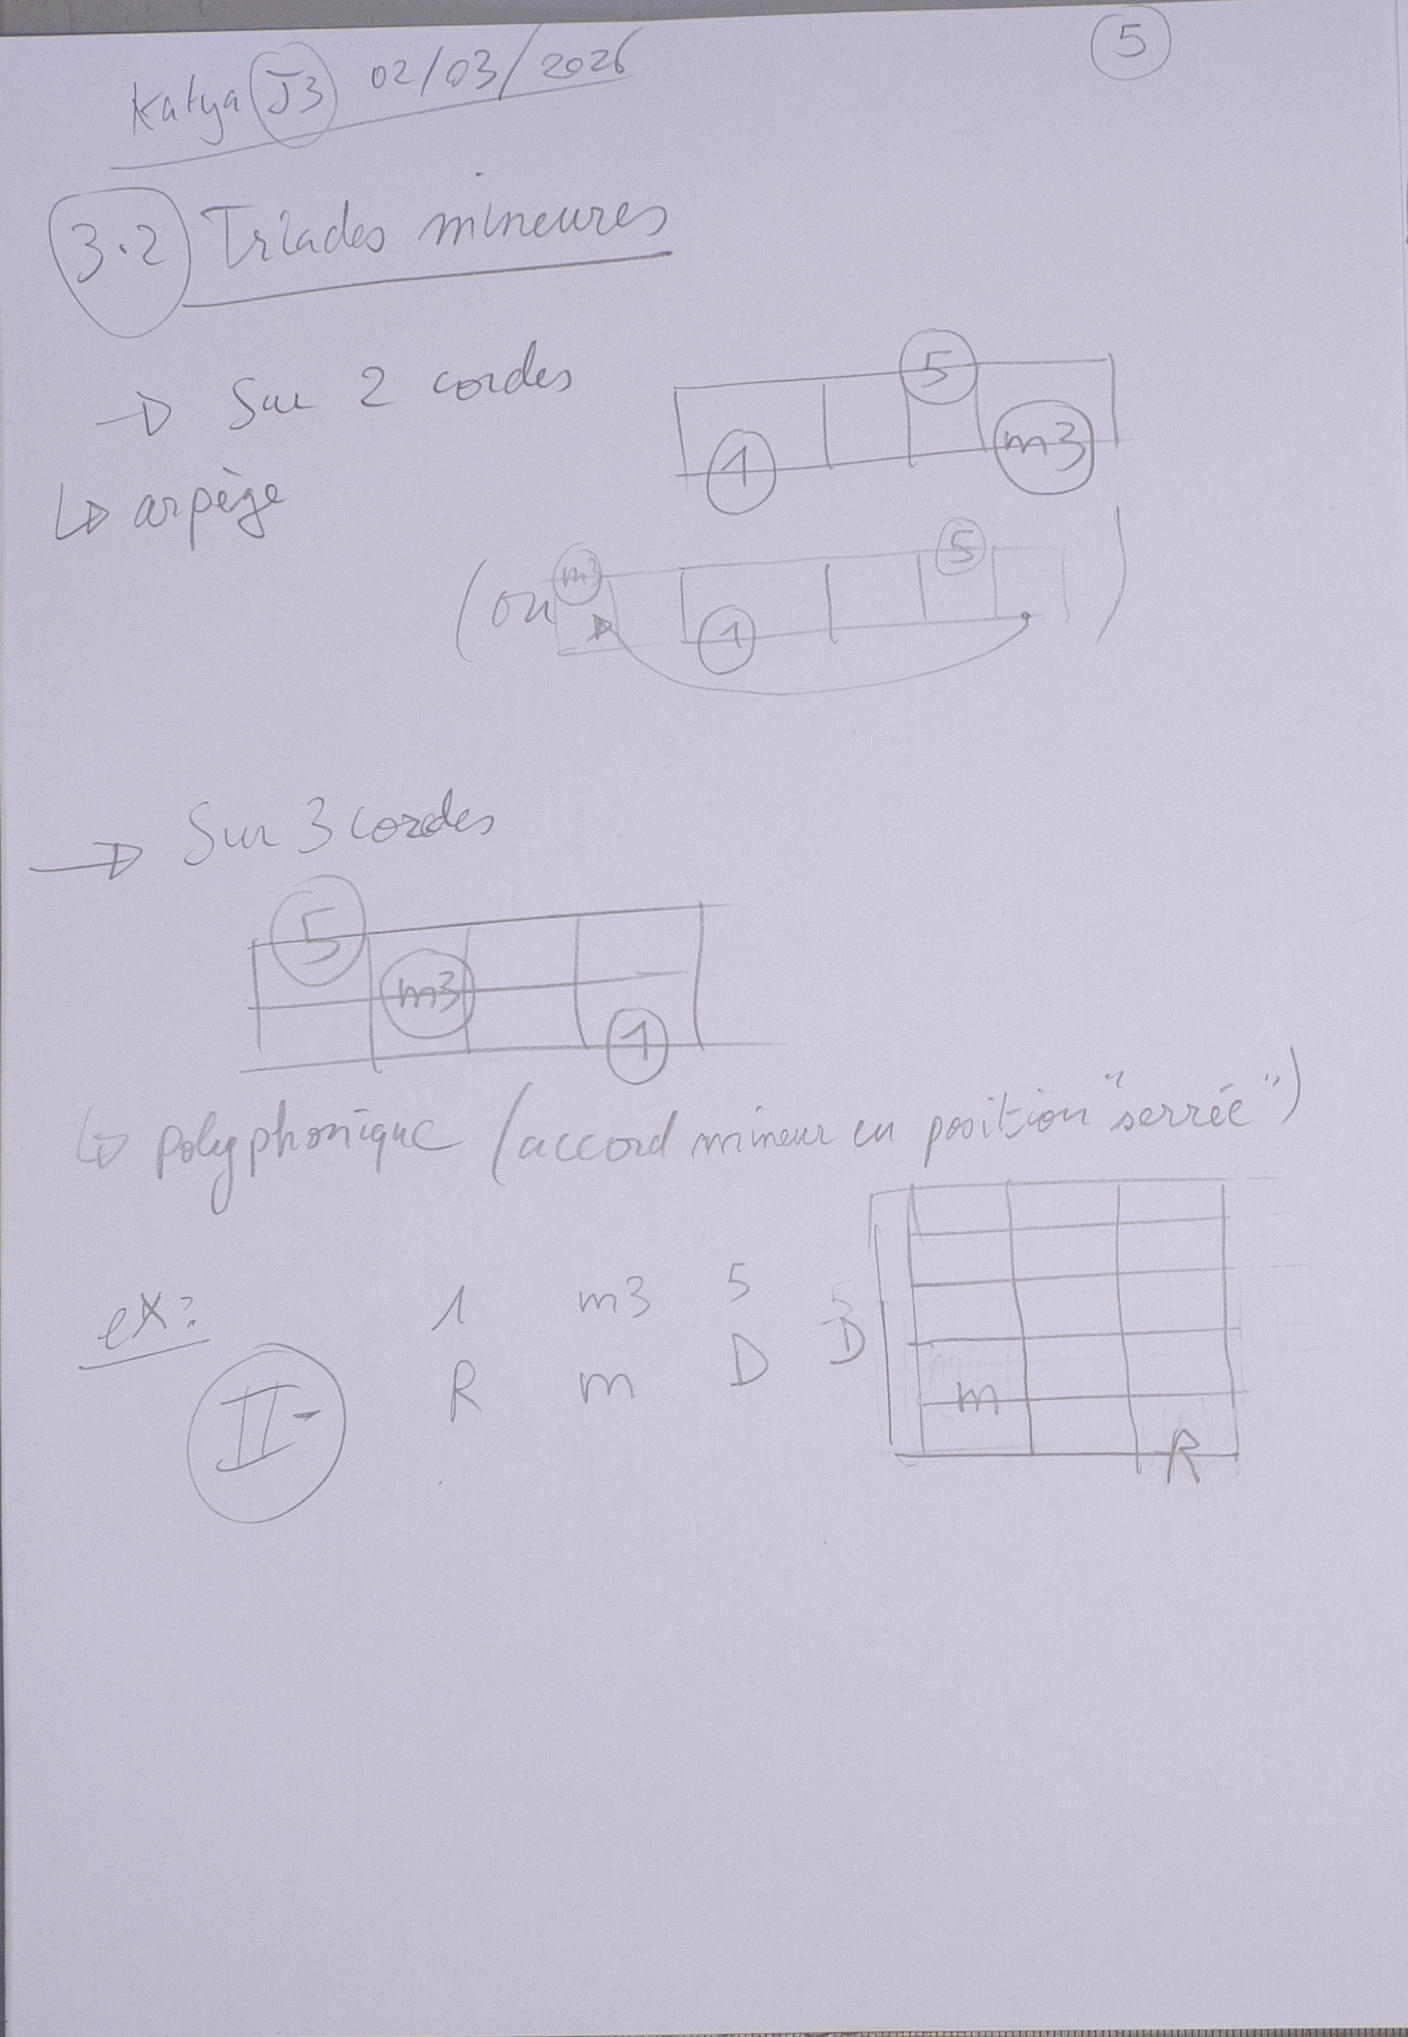 Katya J3 02/03/2026
5
3.2 Triades mineures
→ Sur 2 cordes
5
1
m3
↳ arpège
(ou
m3
5
1
)
→ Sur 3 cordes
5
m3
1
↳ polyphonique (accord mineur en position "serrée")
ex:
1 m3 5
II-
R m D
D
m
R